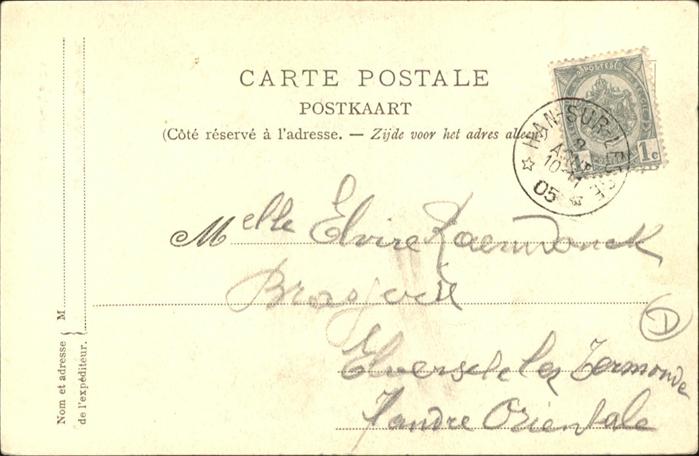 CARTE POSTALE
POSTKAART
(Côté réservé à l'adresse. — Zijde voor het adres alleen
HAN-SUR-LESSE
8
10-M
05
1c
Melle Elvire
lez Termonde
Flandre Orientale
D
Nom et adresse { M
de l'expéditeur.